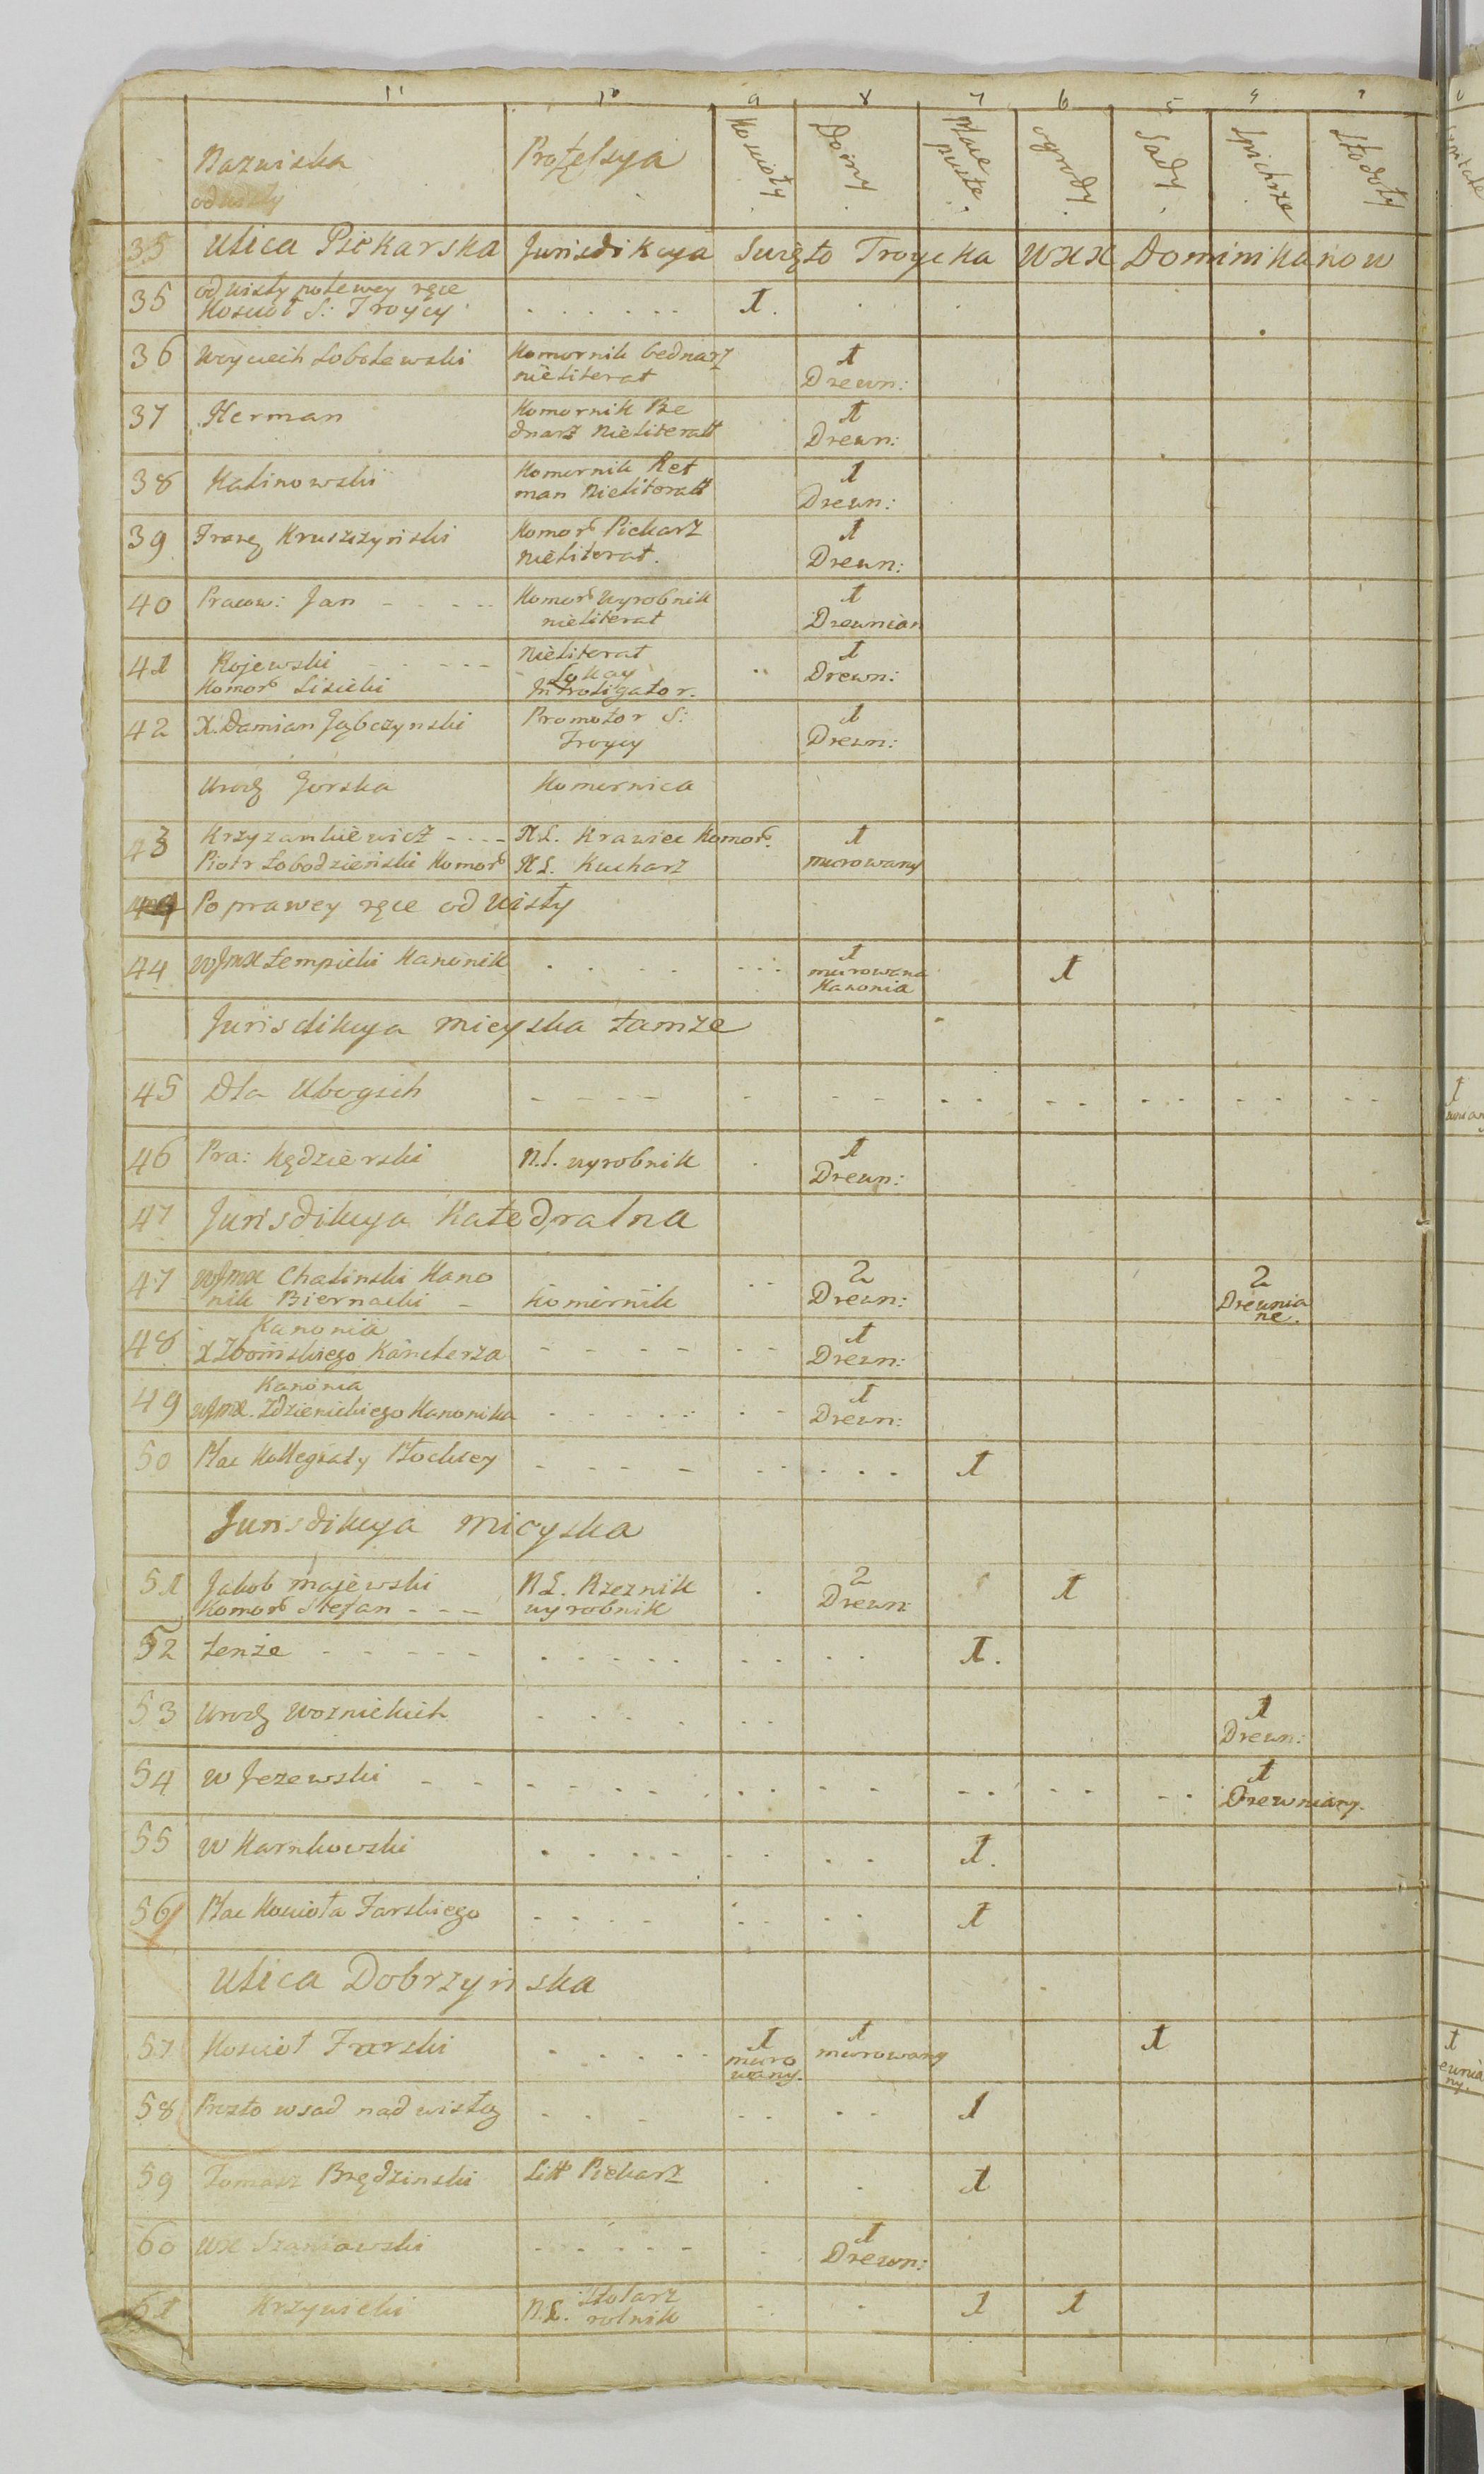 11 10 9 8 7 6 5 4 3
Nazwiska Professya Kościoły Domy Place puste ogrody Sady Spichrze Stodoły
od wisły
35 Ulica Piekarska Jurisdikcya Swięto Troycka WXX Dominikanow
35 od wisły po lewey ręce
Kosciół S: Troycy . . . . . . 1.
36 Woyciech Sobolewski Komornik bednarz 1
nieliterat Drewn:
37 Herman Komornik Be 1
dnarz Nieliterat Drewn:
38 Kalinowski Komornik Ret 1
man Nieliterat Drewn:
39 Franc Kruszczyński Komor Piekarz 1
Nieliterat. Drewn:
40 Pracow: Jan - - - - Komor wyrobnik 1
nieliterat Drewnian
41 Rojewski - - - - - Nieliterat 1
Lokay Drewn:
Komor Lisiecki Introligator.
42 X. Damian Gąbczynski Promotor S: 1
Troycy Drewn:
Urodz Gorska Komornica
43 Krzyzankiewicz - - - - N L. Krawiec Komor. 1
Piotr Łobodzieński Komor N L. Kucharz murowany
44 Po prawey ręce od Wisły
44 WJmX Łempicki Kanonik . . . . . . . 1 1
murowana
Kanonia
Jurisdikcya mieyska tamze
45 Dla Ubogich - - - - - - - - - - - - - - - - -
46 Pra: Kędzierski N. L. wyrobnik . 1
Drewn:
47 Jurisdikcya Katedralna
47 WJmx Chalinski Kano 2 2
nik Biernacki - Komornik Drewn: Drewnia
ne.
48 Kanonia 1
X Zboińskiego Kanclerza - - - - - - - Drewn:
49 Kanonia 1
WJmx. Zdzienickiego Kanonika - - - - - - - Drewn:
50 Plac Kollegiaty Płockiey - - - - - - - - - 1
Jurisdikcya mieyska
51 Jakob Majewski N L. Rzeznik . 2 1
Komor Stefan - - - wyrobnik Drewn:
52 tenże - - - - - . . . . . . . . . 1.
53 Urodz Woznickich . . . . . . 1
Drewn:
54 W Jezewski - - - - - - - - - - - - - - - - - 1
Drewniany.
55 W Karnkowski . . . . . . . . . 1.
56 Plac Kościoła Farskiego - - - - - - - - 1
Ulica Dobrzyńska
57 Kosciół Farski . . . . . 1 1 1
muro murowany
wany.
58 Prosto w sad nad wisłą - - - - - - - 1
59 Tomasz Brędzinski Litt Piekarz . . 1
60 Wx Szaniawski - - - - - - 1
Drewn:
61 Krzywicki N. L. Stolarz . . 1 1
rolnik